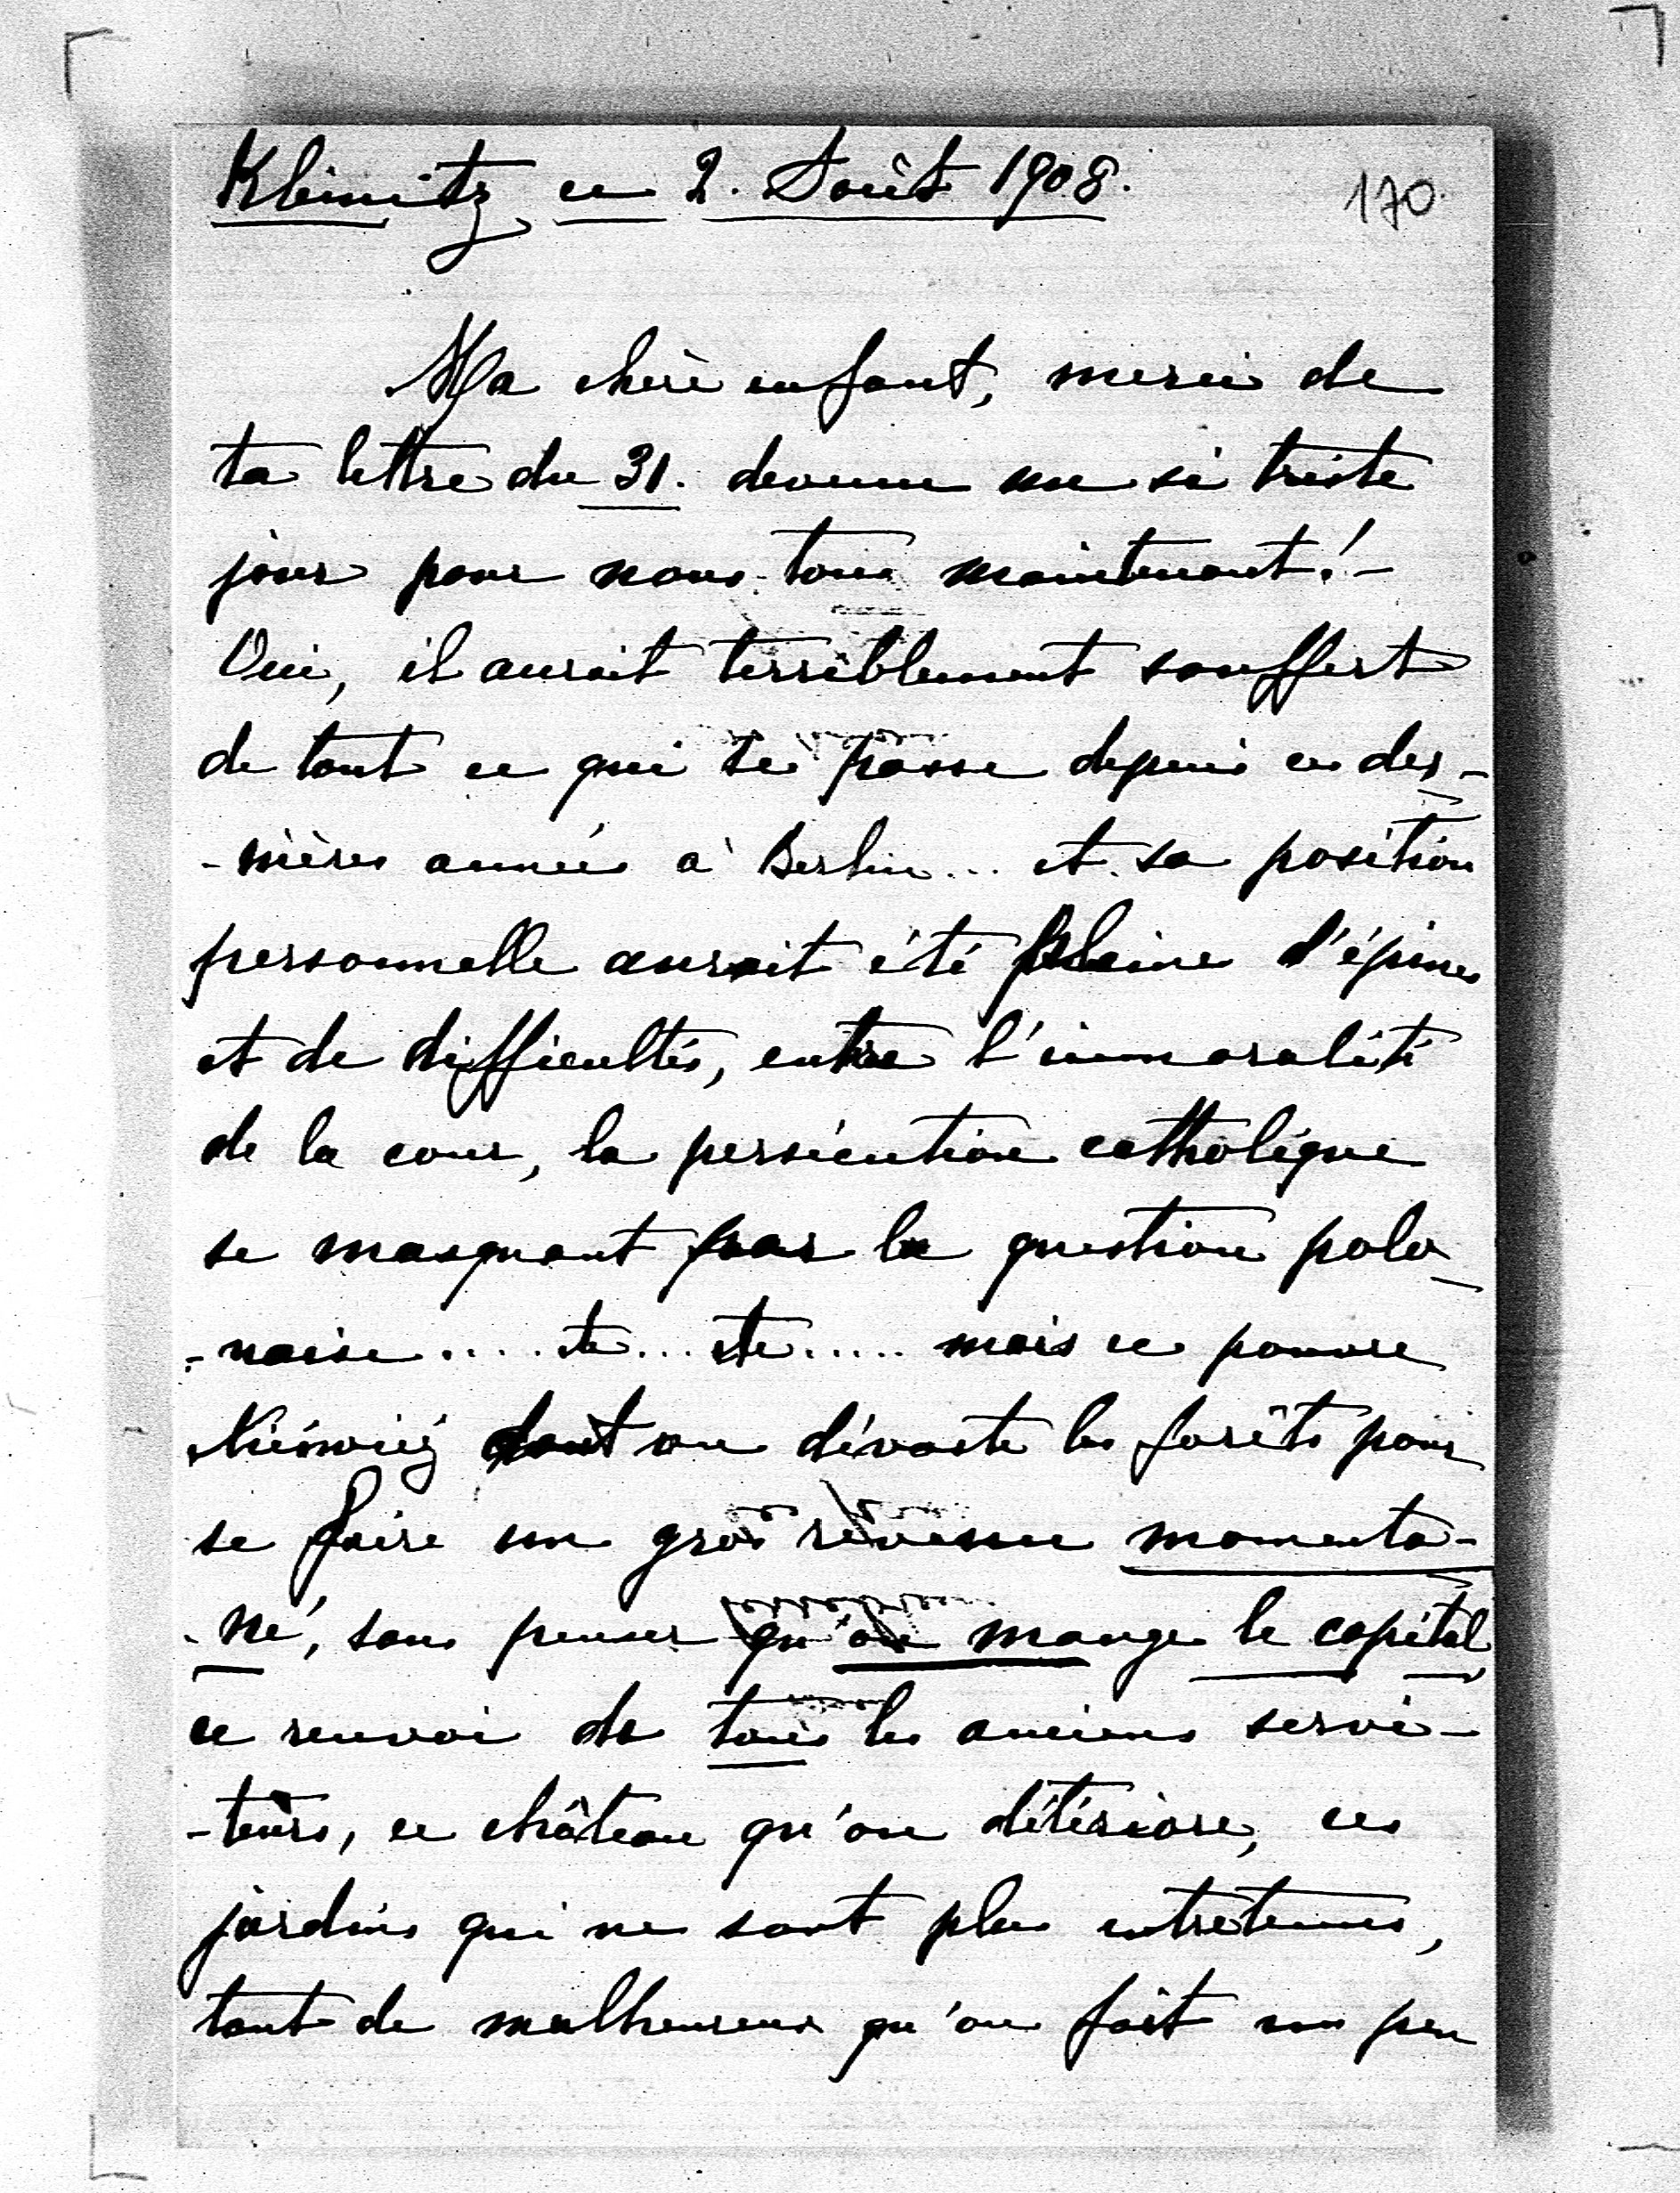 Kleinitz ce 2. Août 1908.
170.
Ma chère enfant, merci de
ta lettre du 31. devenu un si triste
jour pour nous tous maintenant! -
Oui, il aurait terriblement souffert
de tout ce qui se passe depuis ces der-
-nières années à Berlin... et sa position
personnelle aurait été pleine d'épines
et de difficultés, entre l'immoralité
de la cour, la persécution catholique
se masquant par la question polo-
-naise..... etc... etc..... mais ce pauvre
Niéswiéz dont on dévaste les forêts pour
se faire un gros revenu momenta-
-né, sans penser qu'on mange le capital
ce renvoi de tous les anciens servi-
-teurs, ce château qu'on détériore, ces
jardins qui ne sont plus entretenus,
tant de malheureux qu'on fait un peu